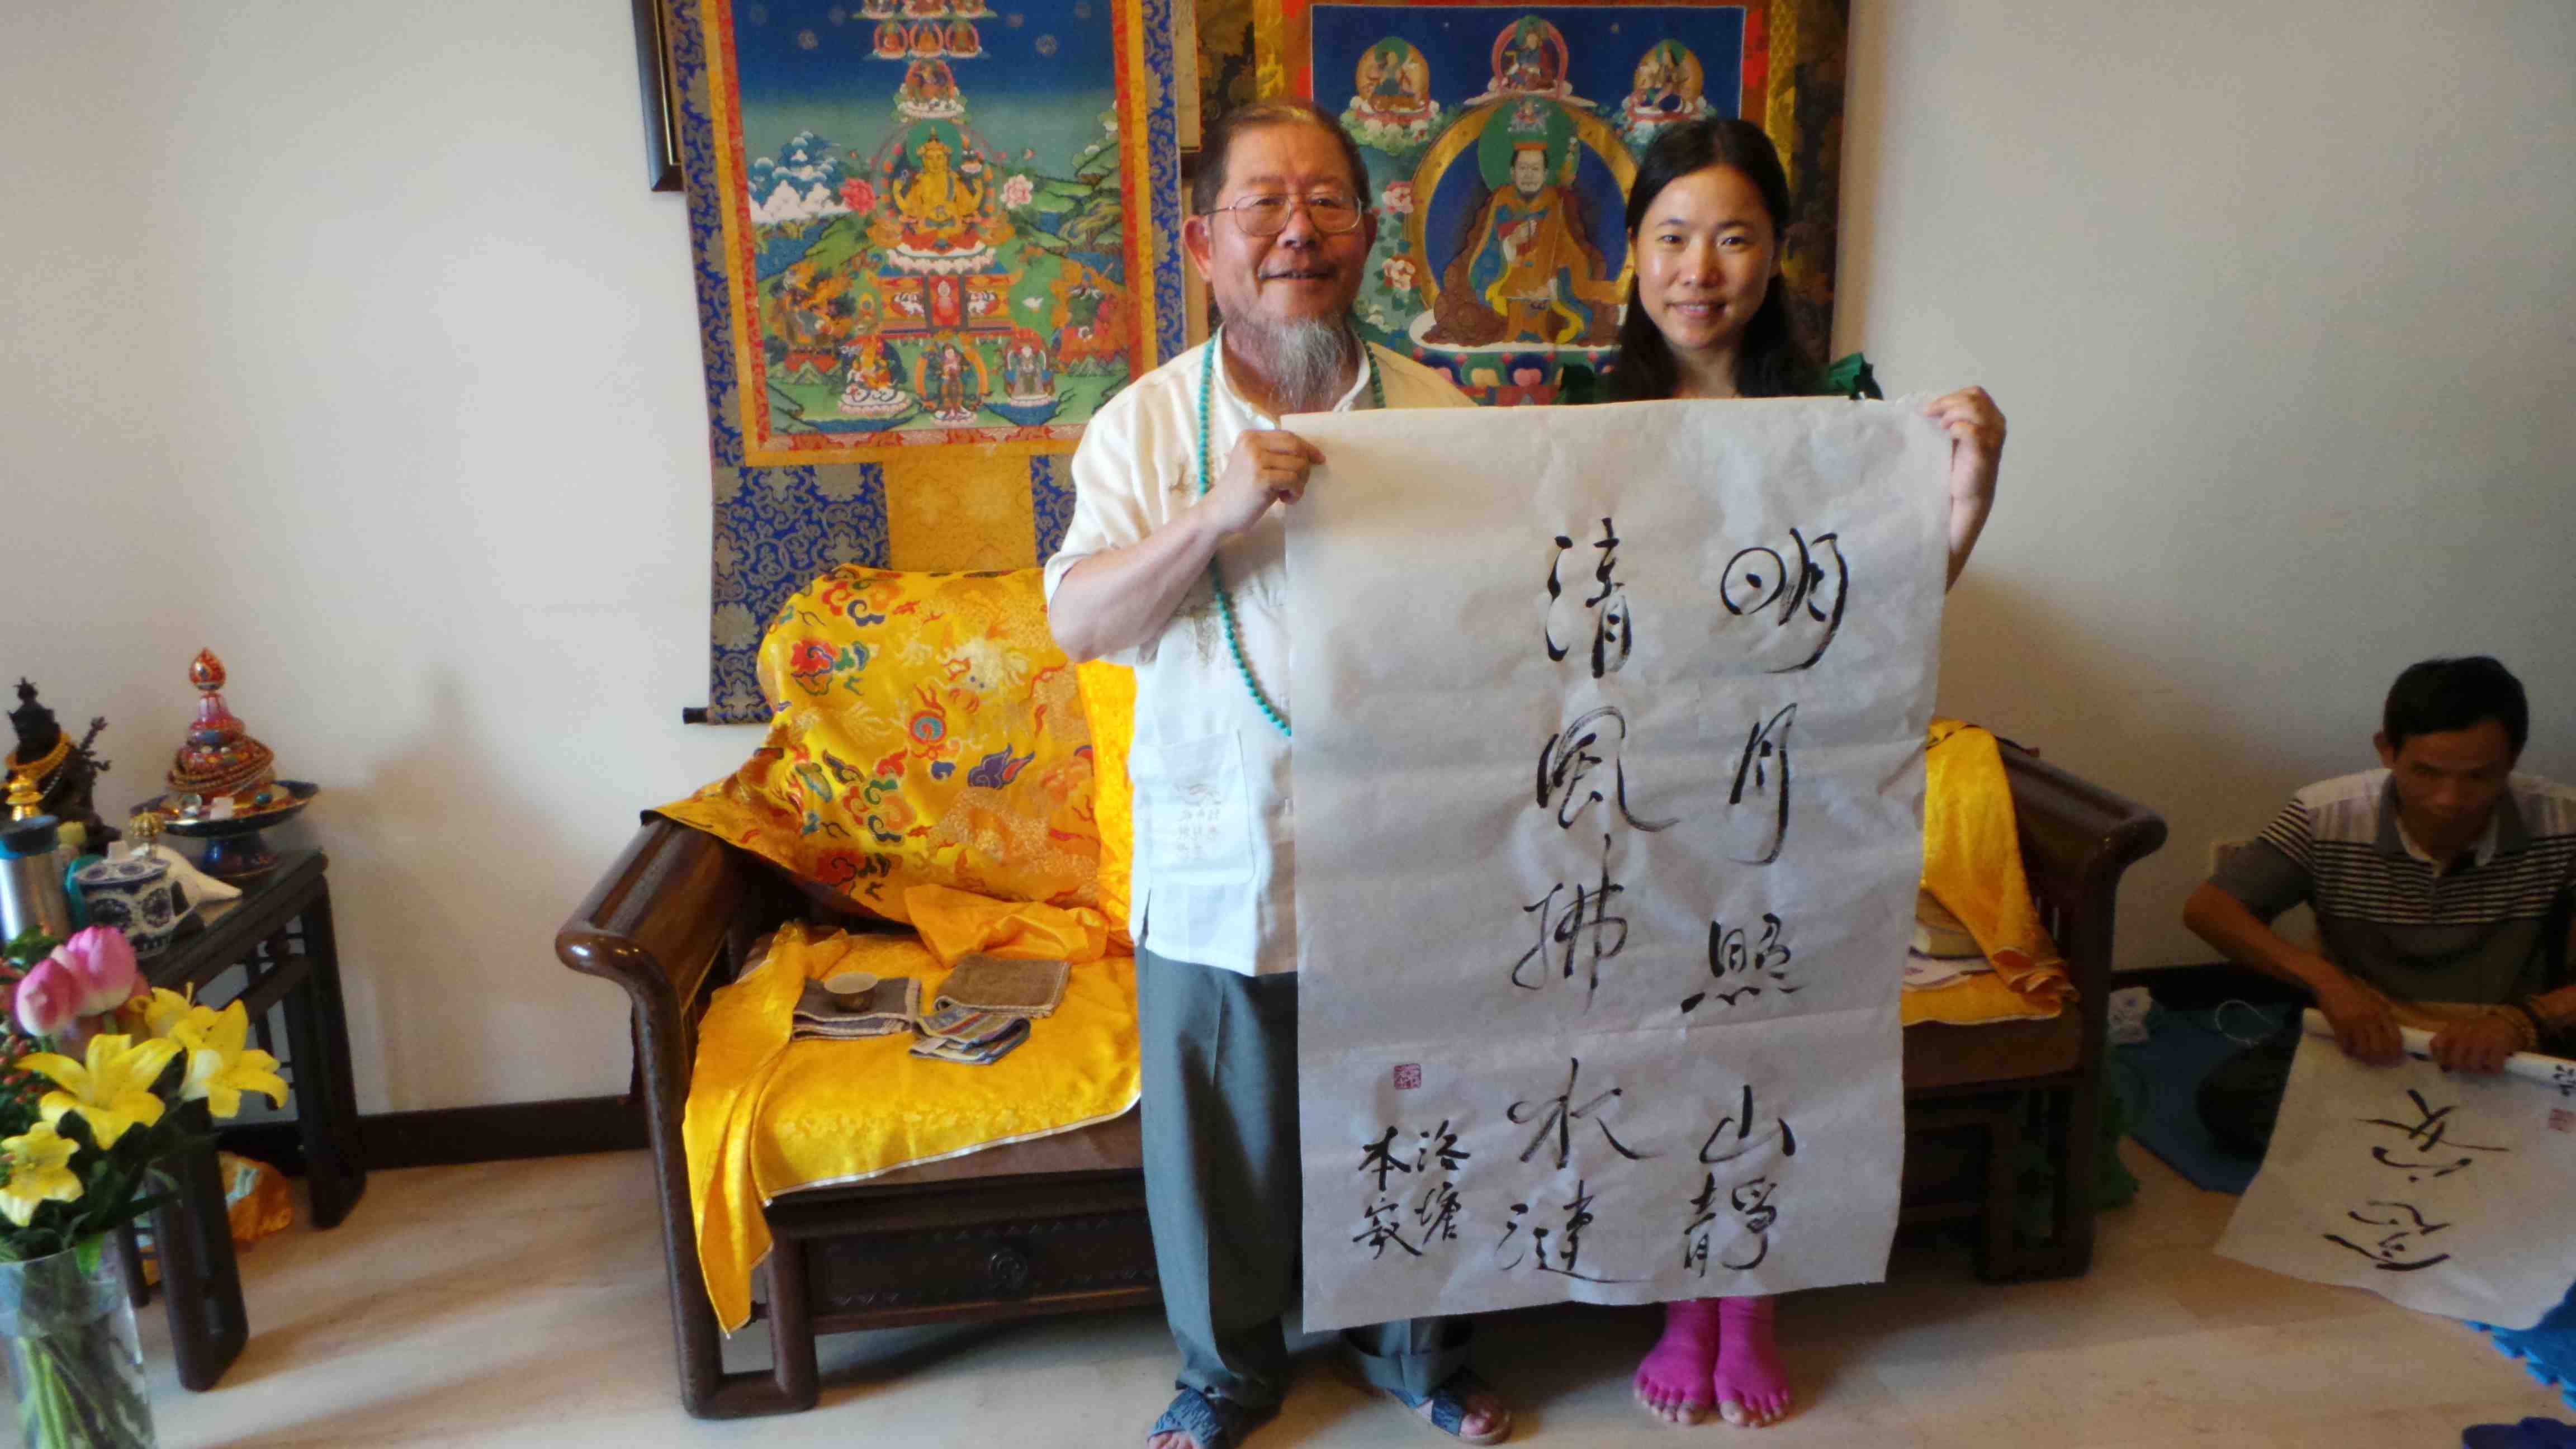 明月照山靜
清風拂水漣
洛塘
本寂